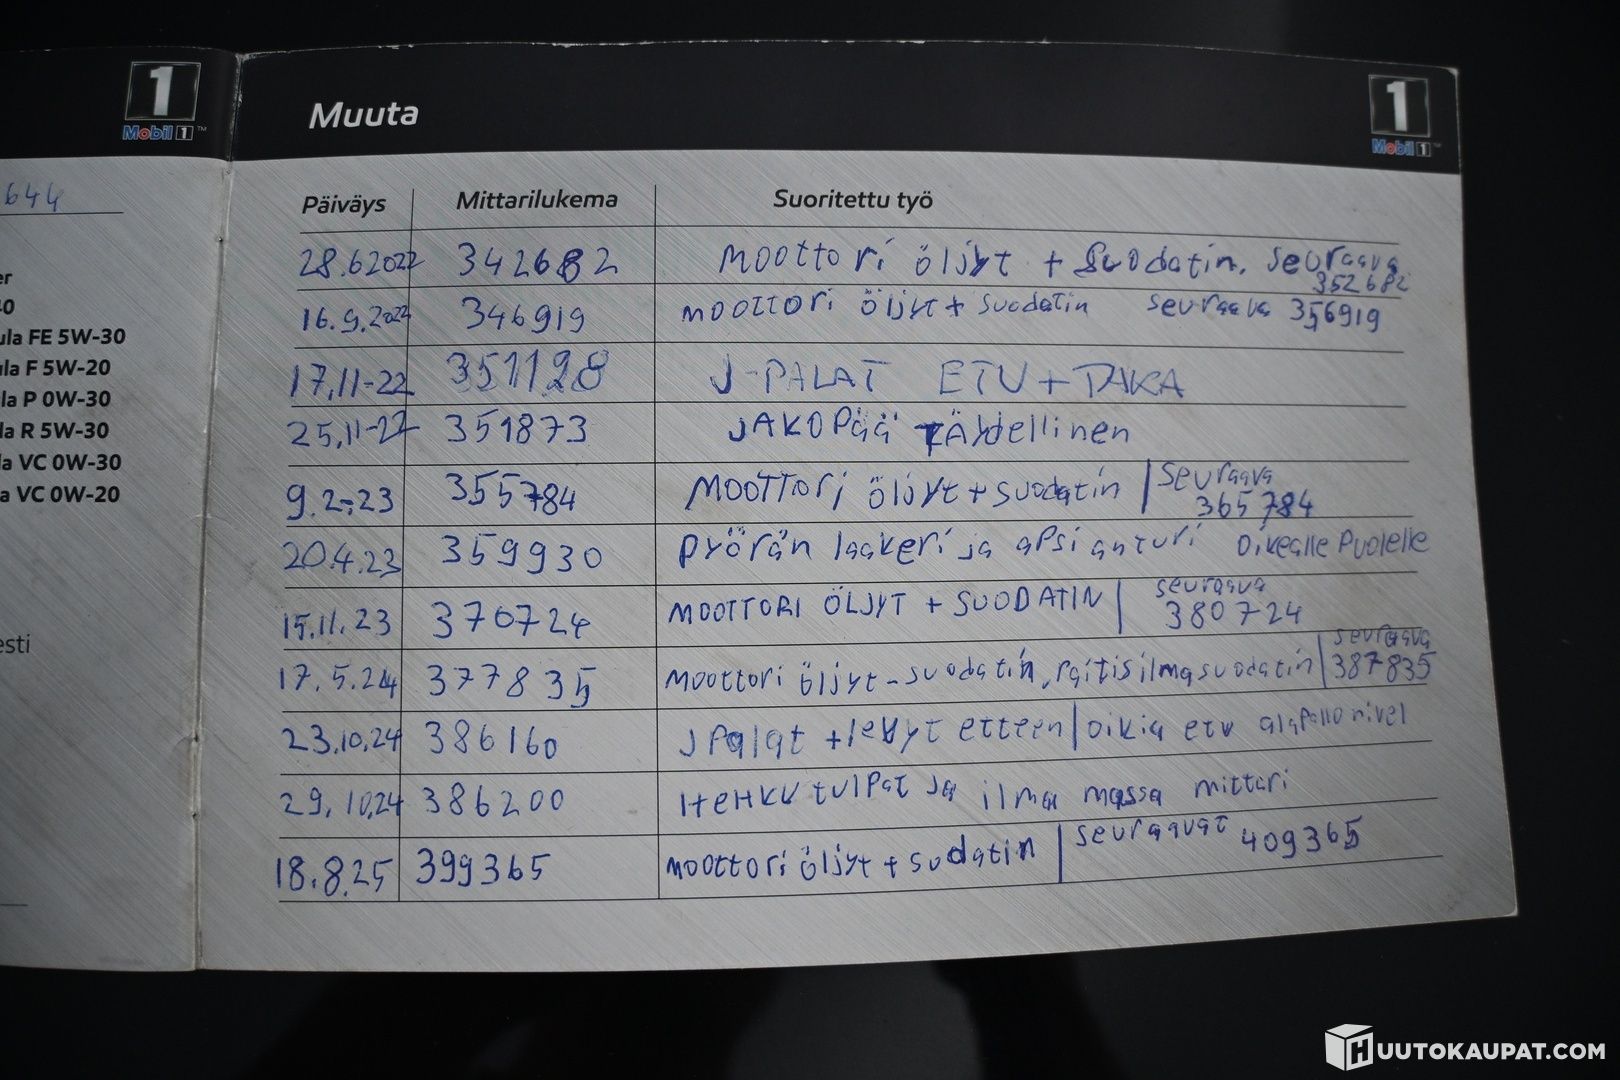 1
Mobil 1™
644
er
40
ula FE 5W-30
ula F 5W-20
la P 0W-30
la R 5W-30
a VC 0W-30
a VC 0W-20
esti
Muuta
1
Mobil 1™
Päiväys Mittarilukema Suoritettu työ
28.6 2022 342682 Moottori öljyt + Suodatin. seuraava 352682
16.9.2022 346919 Moottori öljyt + suodatin seuraava 356919
17.11-22 351128 J-PALAT ETU + TAKA
25.11-22 351873 JAKOPää TäYdellinen
9.2-23 355784 MOOTTORi öljyt + suodatin | seuraava 365784
20.4.23 359930 Pyörän laakeri ja apsi anturi oikealle Puolelle
15.11.23 370724 MOOTTORI ÖLJYT + SUODATIN | seuraava 380724
17.5.24 377835 Moottori öljyt - suodatin, raitisilmasuodatin | seuraava 387835
23.10.24 386160 J Palat + levyt etteen | oikia etu alapallonivel
29.10.24 386200 HeHKK tulpat ja ilma massa mittari
18.8.25 399365 Moottori öljyt + sudatin | seuraavat 409365
HUUTOKAUPAT.COM